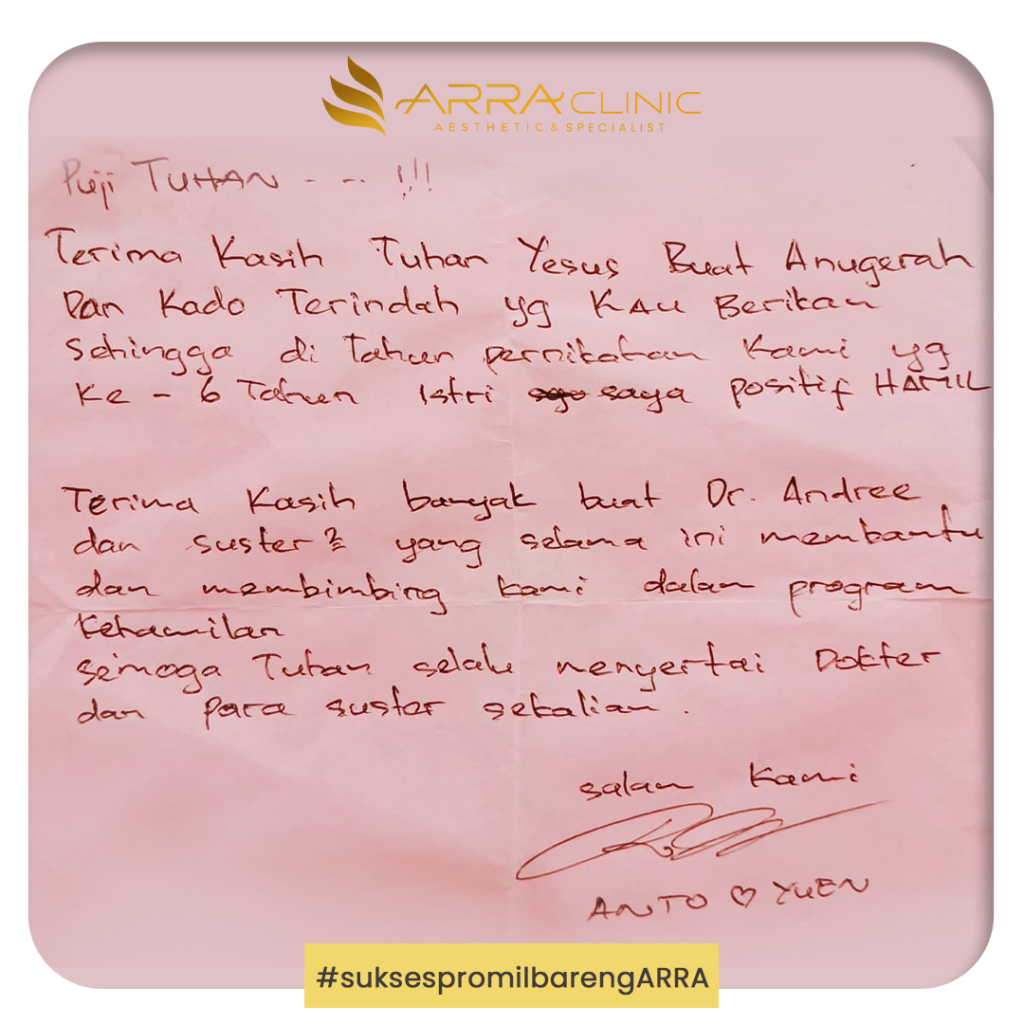 ARRA CLINIC
AESTHETIC & SPECIALIST
Puji TUHAN - - - !!!
Terima Kasih Tuhan Yesus Buat Anugerah
Dan Kado Terindah yg KAU Berikan
Sehingga di Tahun pernikahan Kami yg
Ke - 6 Tahun Istri saya positif HAMIL
Terima Kasih banyak buat Dr. Andree
dan suster2 yang selama ini membantu
dan membimbing kami dalam program
Kehamilan
semoga Tuhan selalu menyertai Dokter
dan para suster sekalian.
salam Kami
ANTO ♡ YUEN
#suksespromilbarengARRA